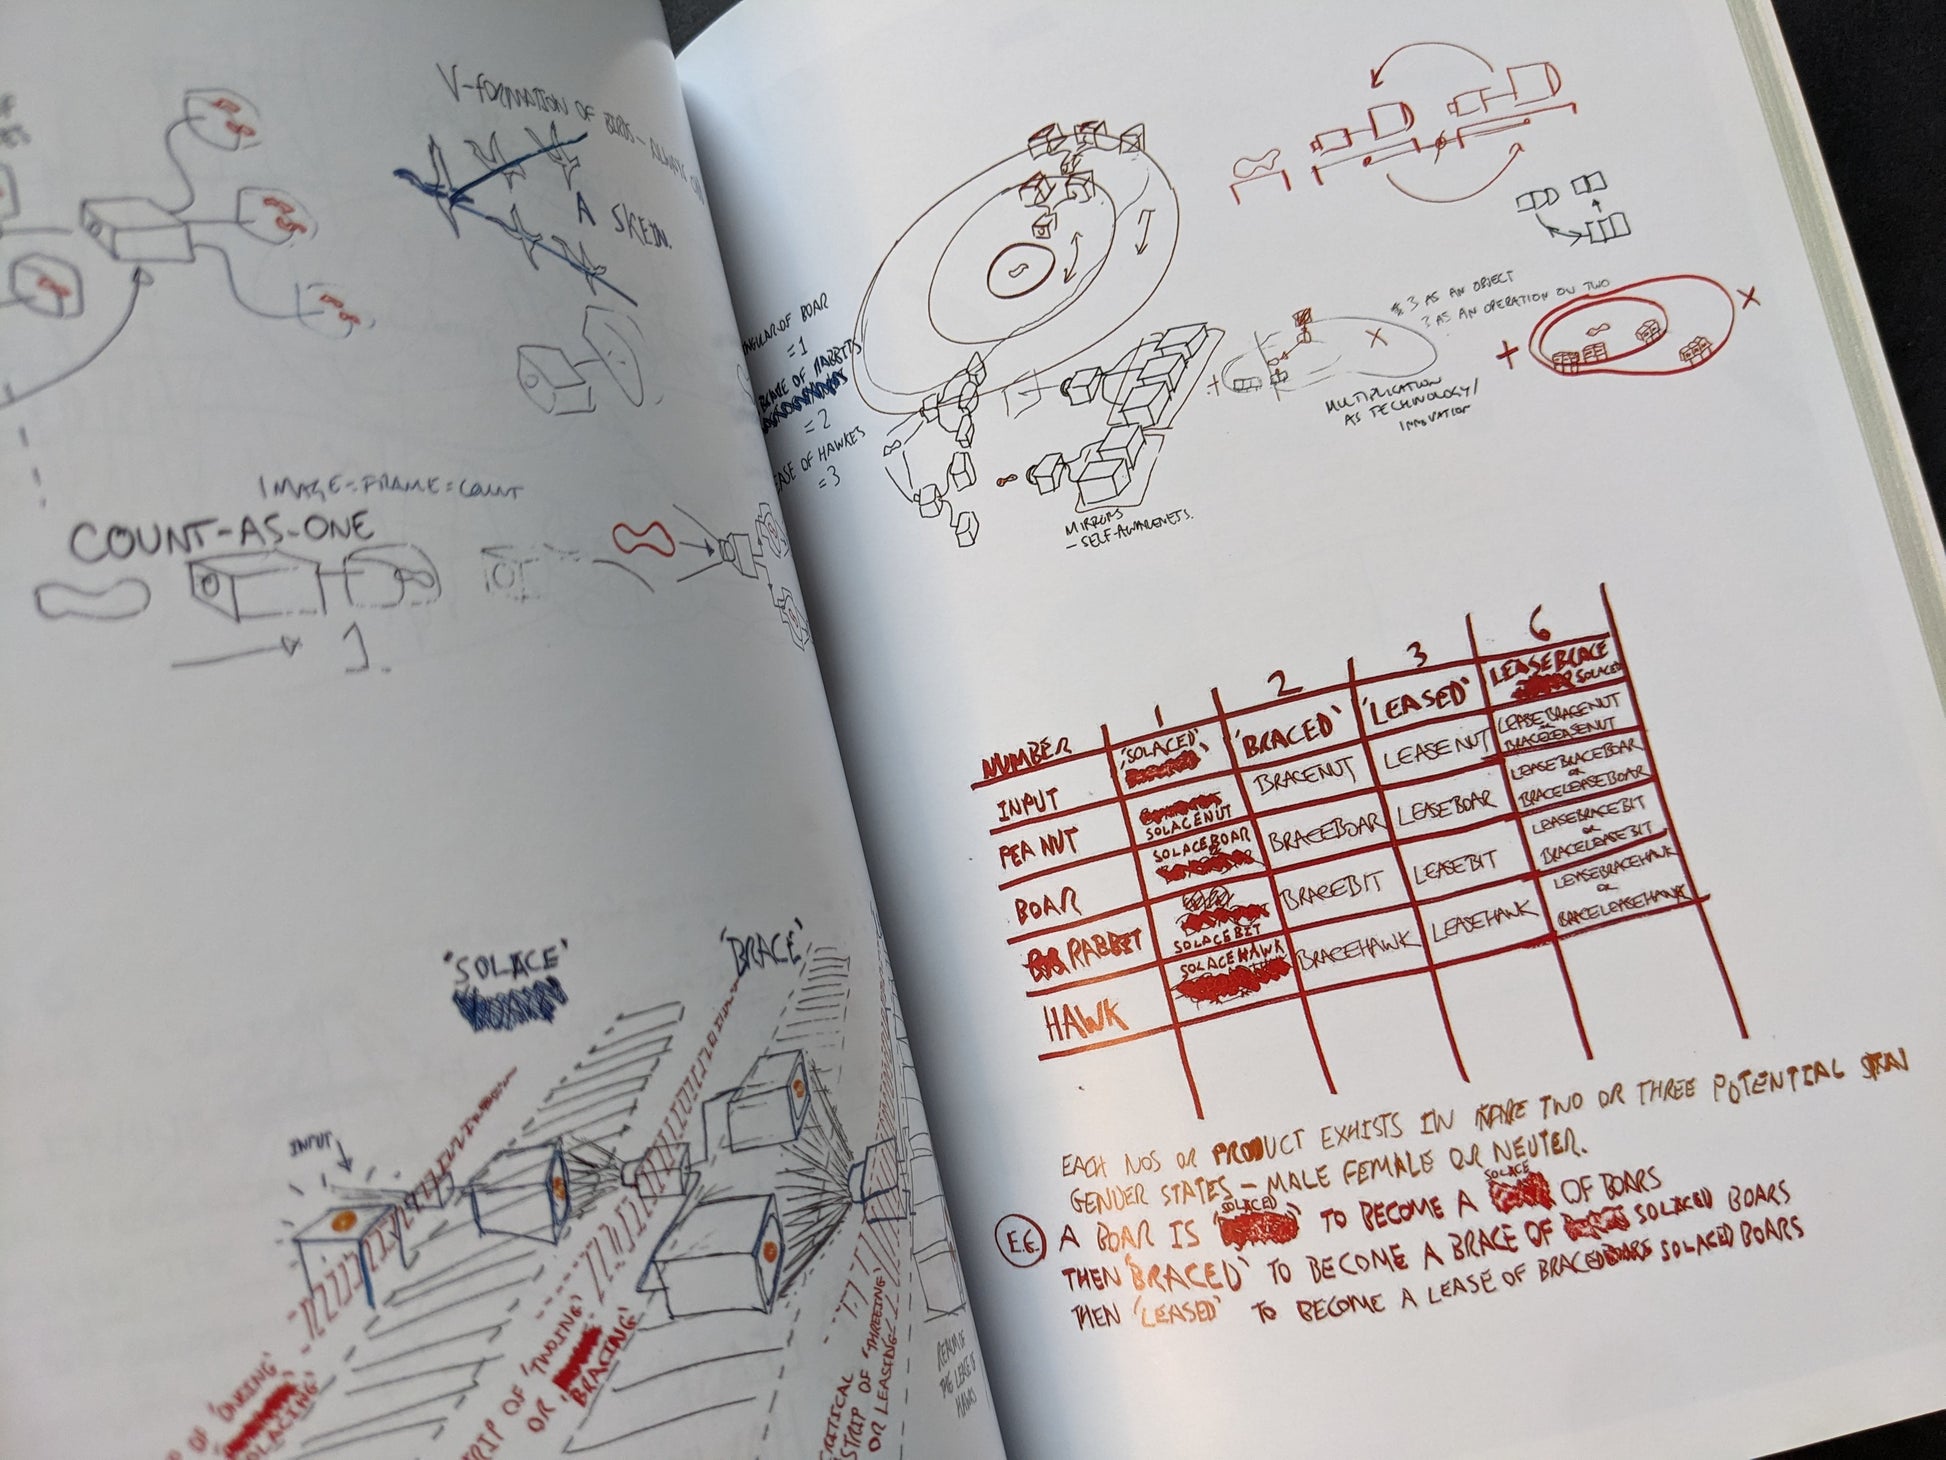 V-FORMATION OF BIRDS - ALWAYS ON
A SKEIN.
IMAGE = FRAME = COUNT
COUNT-AS-ONE
1.
'SOLACE'
'BRACE'
INPUT
OF 'ONEING'
'SOLACING'
STRIP OF 'TWOING'
OR 'BRACING'
STRIP OF 'THREEING'
OR LEASING'
REALM OF
THE LEASE OF
HAWKS
OF BOAR
= 1
OF RABBITS
= 2
OF HAWKES
= 3
3 AS AN OBJECT
3 AS AN OPERATION ON TWO
X
+
X
+
MULTIPLICATION
AS TECHNOLOGY/
INNOVATION
MIRRORS
- SELF-AWARENESS.
NUMBER 1 2 3 6
INPUT 'SOLACED' 'BRACED' 'LEASED' LEASEBRACE SOLACED
PEANUT SOLACENUT BRACENUT LEASENUT LEASEBRACENUT OR BRACELEASENUT
BOAR SOLACEBOAR BRACEBOAR LEASEBOAR LEASEBRACEBOAR OR BRACELEASEBOAR
RABBIT SOLACEBIT BRACEBIT LEASEBIT LEASEBRACEBIT OR BRACELEASEBIT
HAWK SOLACEHAWK BRACEHAWK LEASEHAWK LEASEBRACEHAWK OR BRACELEASEHAWK
EACH NOS OR PRODUCT EXHISTS IN TWO OR THREE POTENTIAL
GENDER STATES - MALE FEMALE OR NEUTER.
E.G. A BOAR IS 'SOLACED' TO BECOME A SOLACE OF BOARS
THEN 'BRACED' TO BECOME A BRACE OF SOLACED BOARS
THEN 'LEASED' TO BECOME A LEASE OF BRACED SOLACED BOARS